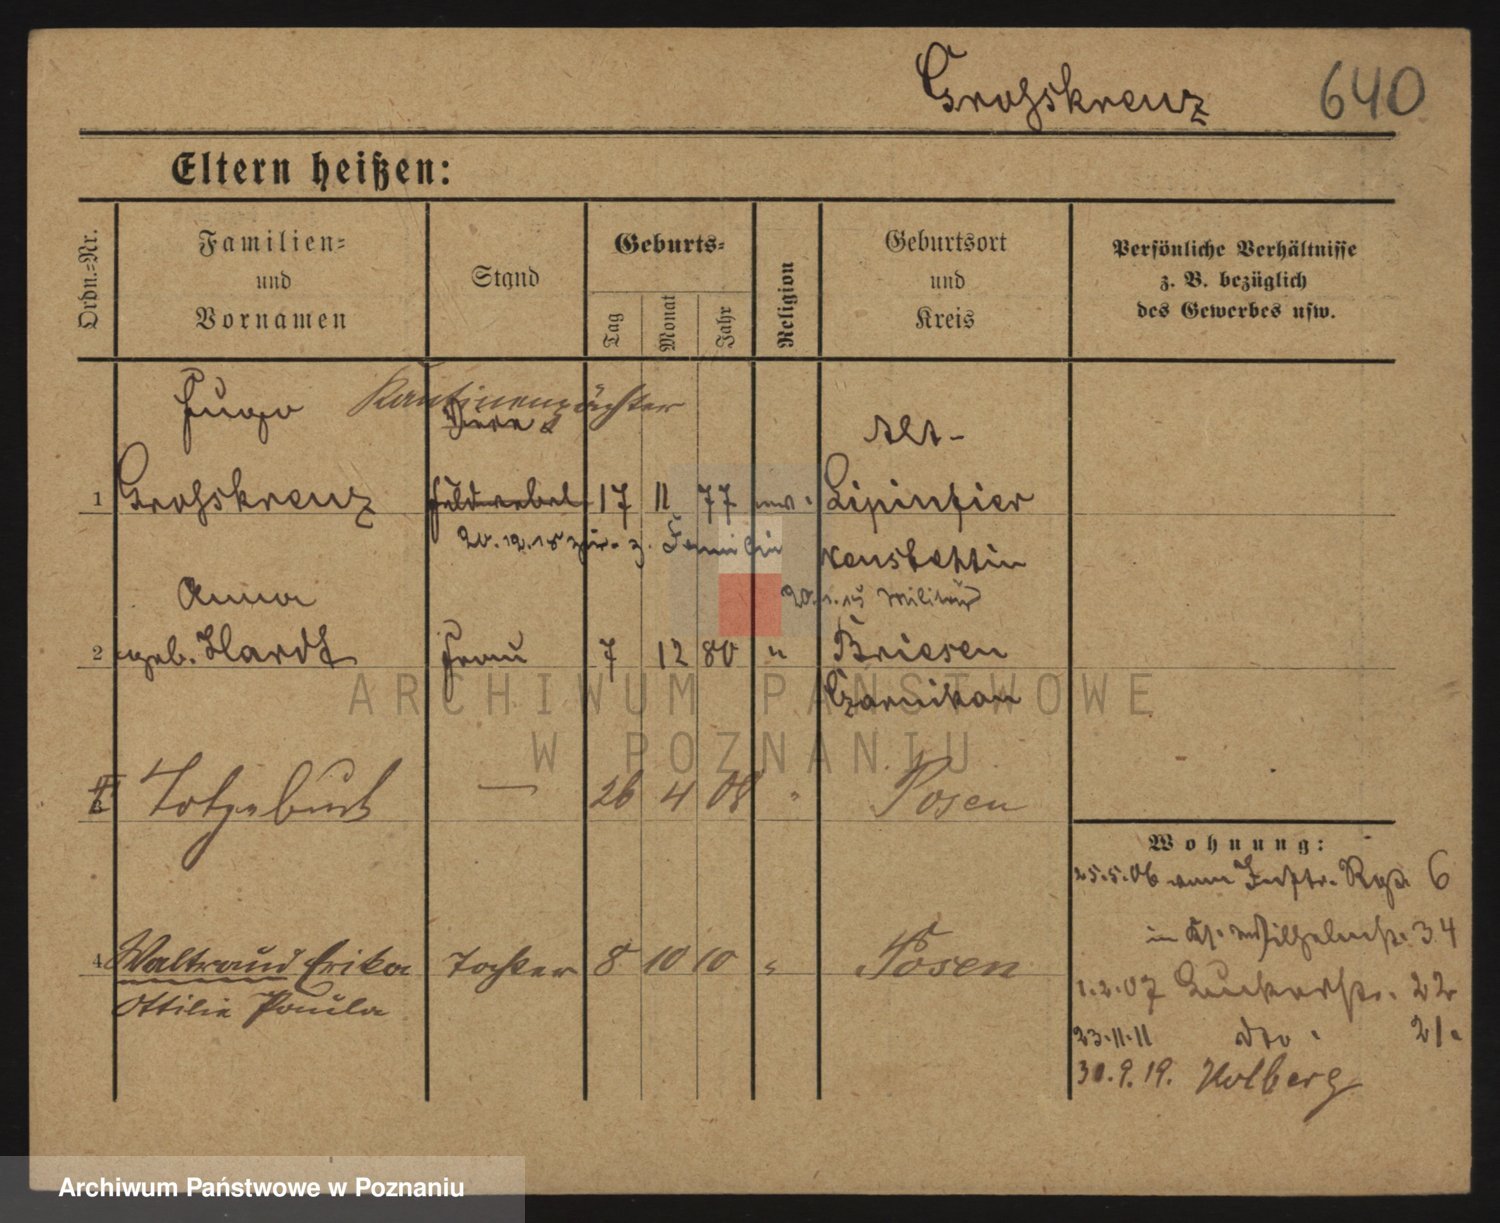 Grosskreuz 640
Eltern heißen:
Ordn.=Nr.
Familien=
und
Vornamen
Stand
Geburts=
Tag
Monat
Jahr
Religion
Geburtsort
und
Kreis
Persönliche Verhältnisse
z. B. bezüglich
des Gewerbes usw.
Hugo Kantinenpächter Alt-
1 Grosskreuz Feldwebel 17 11 77 Lipinfier
20.12.18 z. Familie
Militär
Anna
2 geb. Hardt Frau 7 12 80 " Briesen
Czarnikau
ARCHIWUM PAŃSTWOWE
W POZNANIU
3 Totgeburt — 26 4 08 " Posen
4 Waltraud Erika Tochter 8 10 10 " Posen
Ottilie Paula
Wohnung:
25.5.06 vom Inftr. Rgt. 6
in Wilhelmstr. 34
1.2.07 22
23.11.11 dto. 21.
30.9.19. Kolberg
Archiwum Państwowe w Poznaniu